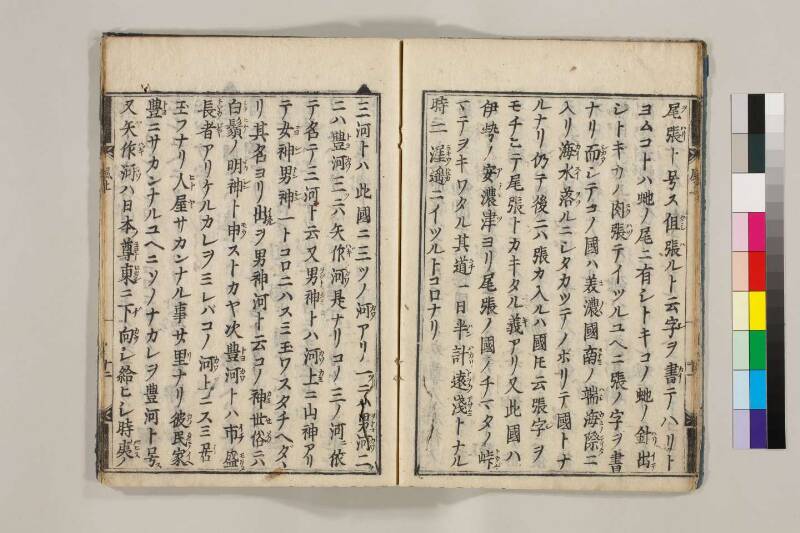 尾張ト号ス但張ルト云字ヲ書テハリト
ヨムコトハ虵ノ尾ニ有シトキコノ虵ノ針出
シトキカノ肉張テイツルユヘニ張ノ字ヲ書
ナリ而シテコノ國ハ美濃國南ノ端海際ニ
入リ海水落ルニシタカツテノボリテ國トナ
ルナリ仍テ後ニハ張カ入ルハ國𪜈云張字ヲ
モチヒテ尾張トカキタル義アリ又此國ハ
伊勢ノ安濃津ヨリ尾張ノ國ノチマタノ峠
マテヲキワタル其道一日半計遠淺トナル
時ニ逕遙ニイツルトコロナリ
三河トハ此國ニ三ツノ河アリノ一ニハ男河二
ニハ豊河三ニハ矢作河是ナリコノ三ノ河ニ依
テ名テ三河ト云又男神トハ河上ニ山神アリ
テ女神男神一トコロニハスミ玉ワスタチヘダヽ
リ其名ヨリ出ヲ男神河ト云コノ神世俗ニハ
白鬚ノ明神ト申ストカヤ次豊河トハ市盛
長者アリケルカレヲミレバコノ河上ニスミ居
玉フナリ人屋サカンナル事サ里ナリ彼民家
豊ニサカンナルユヘニソノナカレヲ豊河ト号ス
又矢作河ハ日本尊東ニ下向シ給ヒシ時夷ノ